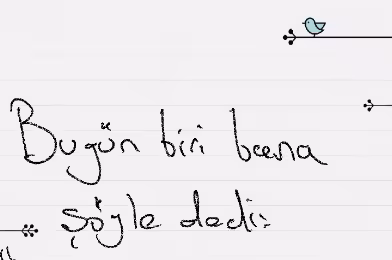 Bugün biri bana
şöyle dedi: